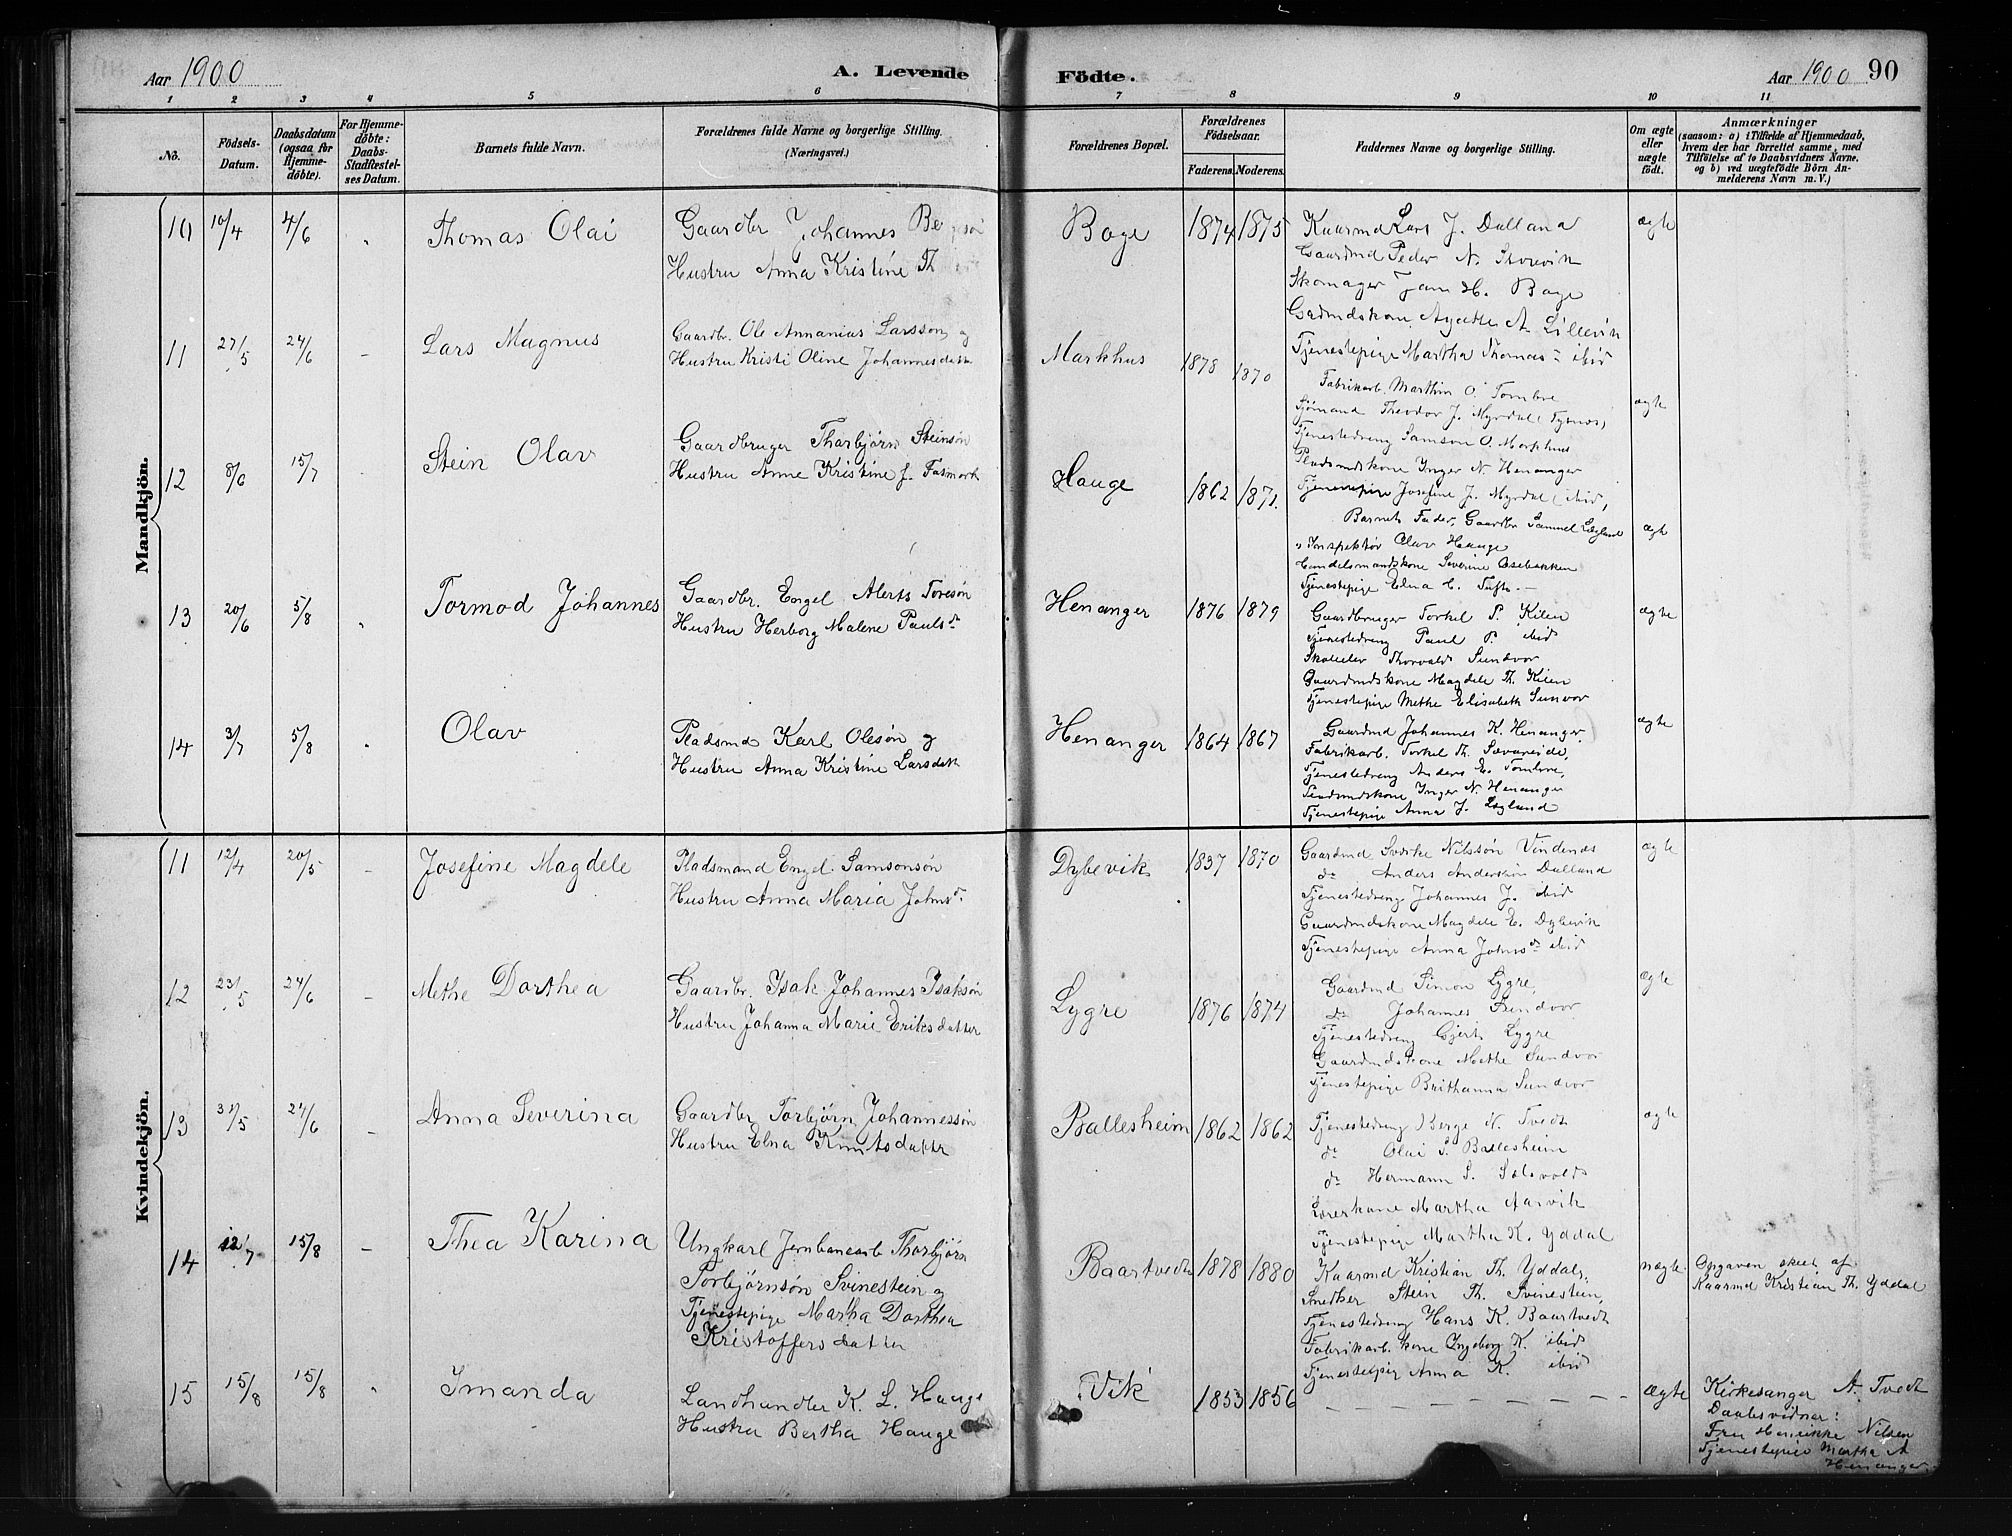 Aar 1900
A. Levende
Födte.
Aar 1900
90
1 2 3 4 5 6 7 8 9 10 11
No.
Födsels-
Datum.
Daabsdatum
(ogsaa for
Hjemme-
döbte).
For Hjemme-
döbte:
Daabs-
Stadfæstel-
ses Datum.
Barnets fulde Navn.
Forældrenes fulde Navne og borgerlige Stilling.
(Næringsvei.)
Forældrenes Bopæl.
Forældrenes
Födselsaar.
Faderens. Moderens.
Faddernes Navne og borgerlige Stilling.
Om ægte
eller
uægte
födt.
Anmærkninger
(saasom: a) i Tilfælde af Hjemmedaab,
hvem der har forrettet samme, med
Tilföielse af to Daabsvidners Navne,
og b) ved uægtefödte Börn An-
melderens Navn m. V.)
Mandkjön.
10 10/4 4/6 Thomas Olai
Gaardbr Johannes
Hustru Anna Kristine Th
Bage 1874 1875
Kaarmd Lars J. Dalland
Gaardmd Peder N. Storevik
Skomager H. Bage
Gardmdskone Agathe A. Lillevik
Tjenestepige Martha Thomas- ibid
ægte
11 27/5 24/6 Lars Magnus
Gaardbr. Ole Annanias Larsson og
Hustru Kristi Oline Johannesdatter
Markhus 1878 1870
Fabrikarb. Marthin O. Tombre
Sjömand Theodor J. Myrdal (Tysnes)
Tjenestedreng Samson O. Markhus
Pladsmdskone Inger N. Henanger
Tjenestepige Josefine J. Myrdal (ibid)
ægte
12 8/6 15/7 Stein Olav
Gaardbruger Thorbjørn Steinsøn
Hustru Anne Kristine f. Fatmark
Hauge 1862 1871.
Barnets Fader, Gaardbr Samuel Lægland
Inspektør Olav Hauge
Handelsmandskone Severine Osebakken
Tjenestepige Edna C. Tufte
ægte
13 20/6 5/8 Tormod Johannes
Gaardbr. Engel Alerts Toresøn
Hustru Herborg Malene Paulsdr
Henanger 1876 1879
Gaardbruger Torkel P. Kilen
Tjenestedreng Paul P. ibid
Skoleelev Thorvald Sundvor
Gaardmdskone Magdele Th. Kilen
Tjenestepige Methe Elisabeth Sunvor
ægte
14 3/7 5/8 Olav
Pladsmd Karl Olesøn og
Hustru Anna Kristine Larsdtr
Henanger 1864 1867
Gaardmd Johannes K. Henanger,
Fabrikarb. Torkel Th. Sævareide,
Tjenestedreng Anders E. Tombre,
Pladsmdskone Inger N. Henanger
Tjenestepige Anna J. Lægland
ægte
Kvindekjön.
11 12/4 20/5 Josefine Magdele
Pladsmand Engel Samsonsøn
Hustru Anna Maria Johnsdr
Dybevik 1837 1870
Gaardmd Sverke Nilssøn Vindenes
do Anders Andersøn Dalland
Tjenestedreng Johannes J. ibid
Gaardmdskone Magdele E. Dybevik
Tjenestepige Anna Johnsdr ibid
ægte
12 23/5 24/6 Methe Dorthea
Gaardbr. Isak Johannes Isaksøn
Hustru Johanna Marie Eriksdatter
Lygre 1876 1874
Gaardmd Simon Lygre,
do Johannes Sundvor
Tjenestedreng Gjert Lygre
Gaardmdskone Methe Sundvor
Tjenestepige Brithanna Sundvor
ægte
13 31/5 24/6 Anna Severina
Gaardbr Torbjørn Johannessøn
Hustru Elna Knutsdatter
Ballesheim 1862 1862
Tjenestedreng Berge N. Tvedt
do Olai S. Ballesheim
do Hermann S. Solsvold
Lærerkone Martha Aarvik
Tjenestepige Martha K. Yddal
ægte
14 12/7 15/8 Thea Karina
Ungkarl Jernbanearb Thorbjørn
Torbjørnsøn Svinestein og
Tjenestepige Martha Dorthea
Kristoffersdatter
Baartvedt 1878 1880
Kaarmd Kristian Th. Yddal,
Snedker Stein Th. Svinestein,
Tjenestedreng Hans K. Baartvedt
Fabrikarb. kone Ingeborg K. ibid
Tjenestepige Anna K. ibid
uægte.
Opgaven skeet af
Kaarmd Kristian Th. Yddal
15 15/8 15/8 Imanda
Landhandler K. L. Hauge
Hustru Bertha Hauge
Vik 1853 1856
ægte
Kirkesanger A. Tvedt
Daabsvidner:
Fru Henrikke Nilsen
Tjenestepige Martha A
Henanger.